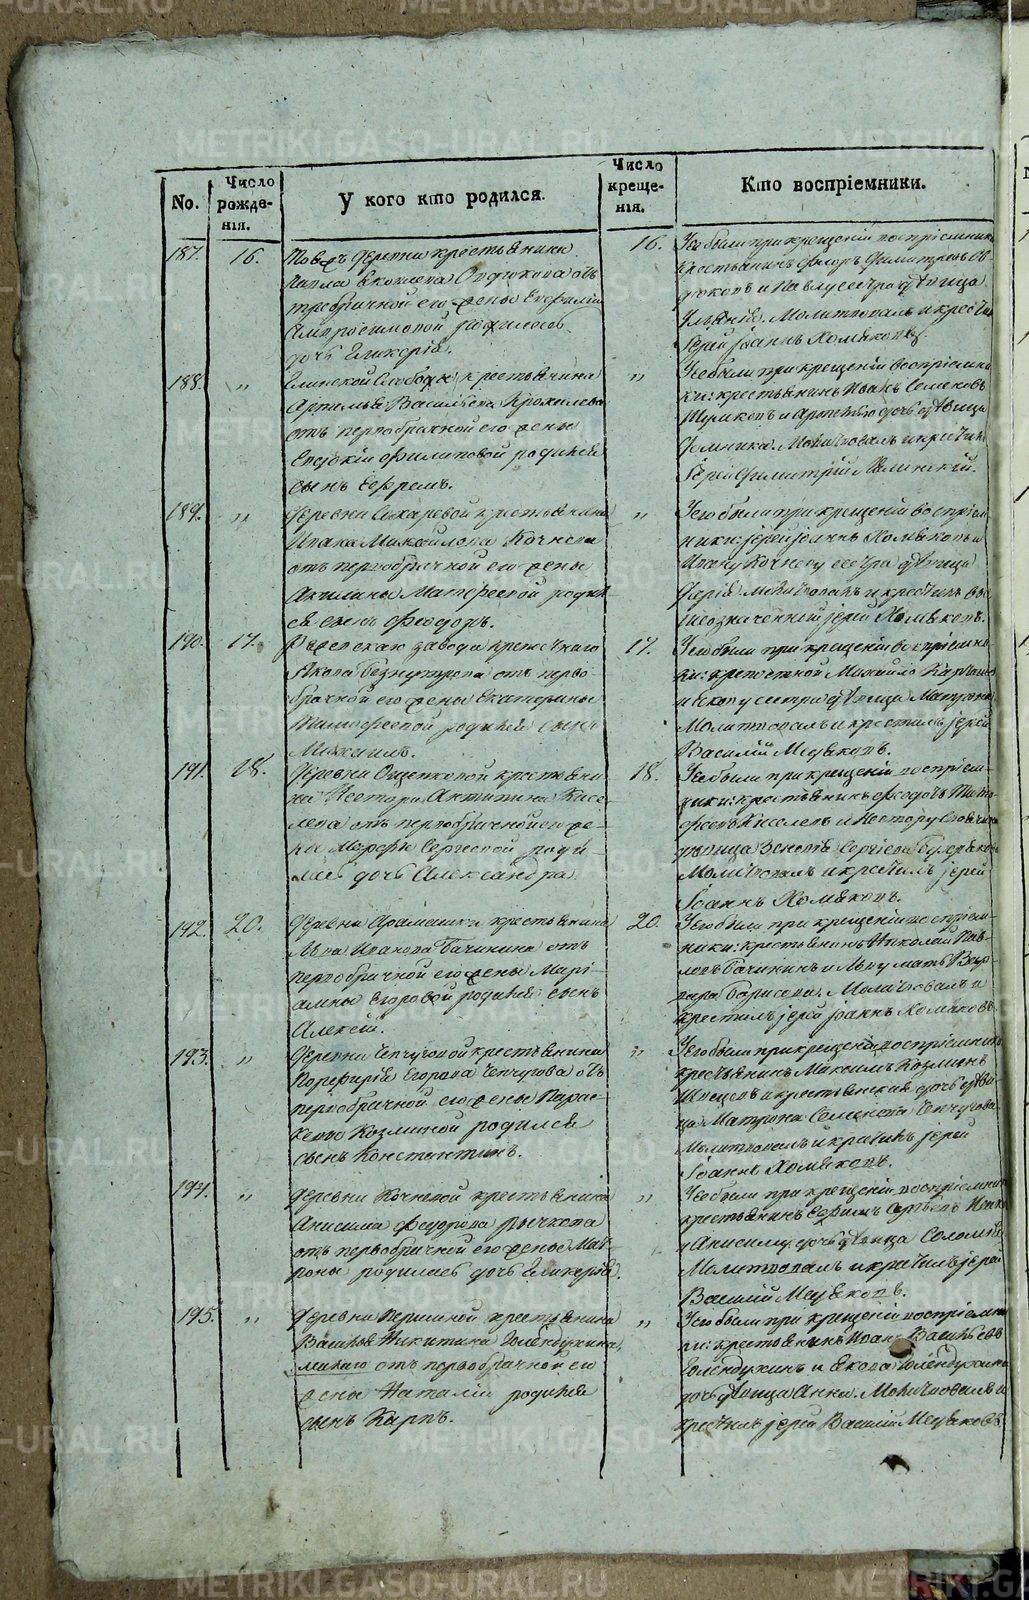 METRIKI.GASO-URAL.RU
No.
Число рожденія.
У кого кто родился.
Число крещенія.
Кто воспріемники.
187. 16.
Тоежъ деревни крестьянина
Павла Яковлева Ѳедюкова отъ
его жены
родилась
дочь Гликерія.
16.
У сего были при крещеніи воспріемники
крестьянинъ Флоръ Димитріевъ
и Павлу сестра дѣвица
Молитвовалъ и крестилъ
Іерей Іоаннъ Хомяковъ.
188. "
Глинской Слободы крестьянина
Артемья Васильева
отъ первобрачной его жены
Евдокіи Филиповой родился
сынъ Ефремъ.
"
У сего были при крещеніи воспріемни-
ки: крестьянинъ Иванъ Семеновъ
и Артемью дочь дѣвица
Домника. Молитвовалъ и крестилъ
Іерей Димитрій
189. "
Деревни крестьянина
Ивана Михайлова Кочнева
отъ первобрачной его жены
Акилины Матвеевой родил-
ся сынъ Феодоръ.
"
У сего были при крещеніи воспріем-
ники: іерей Іоаннъ Хомяковъ и
Ивану Кочневу сестра дѣвица
Дарія. Молитвовалъ и крестилъ вы-
шеозначенный іерей Хомяковъ.
190. 17.
завода крепостнаго
Якова от перво-
брачной его жены Екатерины
Тимофеевой родился сынъ
Михаилъ.
17.
У сего были при крещеніи воспріемни-
ки: крепостной Михайло
и Якову сестра дѣвица Матрона
Молитвовалъ и крестилъ іерей
Василій Медяковъ.
191. 18.
Деревни Ощепковой крестьяни-
на Нестора Антипина Кисе-
лева отъ первобрачной его же-
ны Марфы Сергеевой роди-
лась дочь Александра.
18.
У сего были при крещеніи воспріем-
ники: крестьянинъ Федотъ
Киселевъ и Нестору
дѣвица Зеновія Сергіева
Молитвовалъ и крестилъ іерей
Іоаннъ Хомяковъ.
192. 20.
Деревни Арамашки крестьянина
Льва Иванова Бачинина отъ
первобрачной его жены Марі-
амны Егоровой родился сынъ
Алексій.
20.
У сего были при крещеніи воспріем-
ники: крестьянинъ Николай Пав-
ловъ Бачининъ и Льву мать Вар-
вара Борисова. Молитвовалъ и
крестилъ іерей Іоаннъ Хомяковъ.
193. "
Деревни Чепчуговой крестьянина
Порфирія Егорова Чепчугова отъ
первобрачной его жены Парас-
кевы Козминой родился
сынъ Константинъ.
"
У сего были при крещеніи воспріемники
крестьянинъ Максимъ Козминъ
Швецовъ и крестьянская дочь дѣви-
ца Матрона Семенова Чепчугова
Молитвовалъ и крестилъ іерей
Іоаннъ Хомяковъ.
194. "
Деревни Кочневой крестьянина
Анисима Федорова Рычкова
отъ первобрачной его жены Мат-
роны родилась дочь Гликерія.
"
У сего были при крещеніи воспріемники
крестьянинъ Ефимъ
и Анисиму дочь дѣвица Соломія
Молитвовалъ и крестилъ іерей
Василій Медяковъ.
195. "
Деревни Першиной крестьянина
Василья Никитина Голендухина
отъ первобрачной его
жены Наталіи родился
сынъ Карпъ.
"
У сего были при крещеніи воспріемни-
ки: крестьянинъ Иванъ Васильевъ
Голендухинъ и Якова Голендухина
дочь дѣвица Анна. Молитвовалъ и
крестилъ іерей Василій Медяковъ.